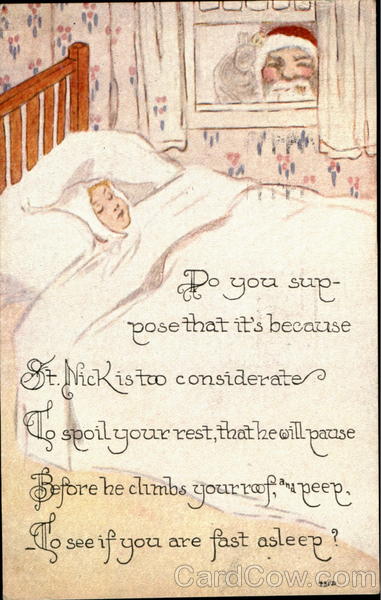 Do you sup-
pose that it's because
St. Nick is too considerate
To spoil your rest, that he will pause
Before he climbs your roof, and peep,
To see if you are fast asleep?
CardCow.com